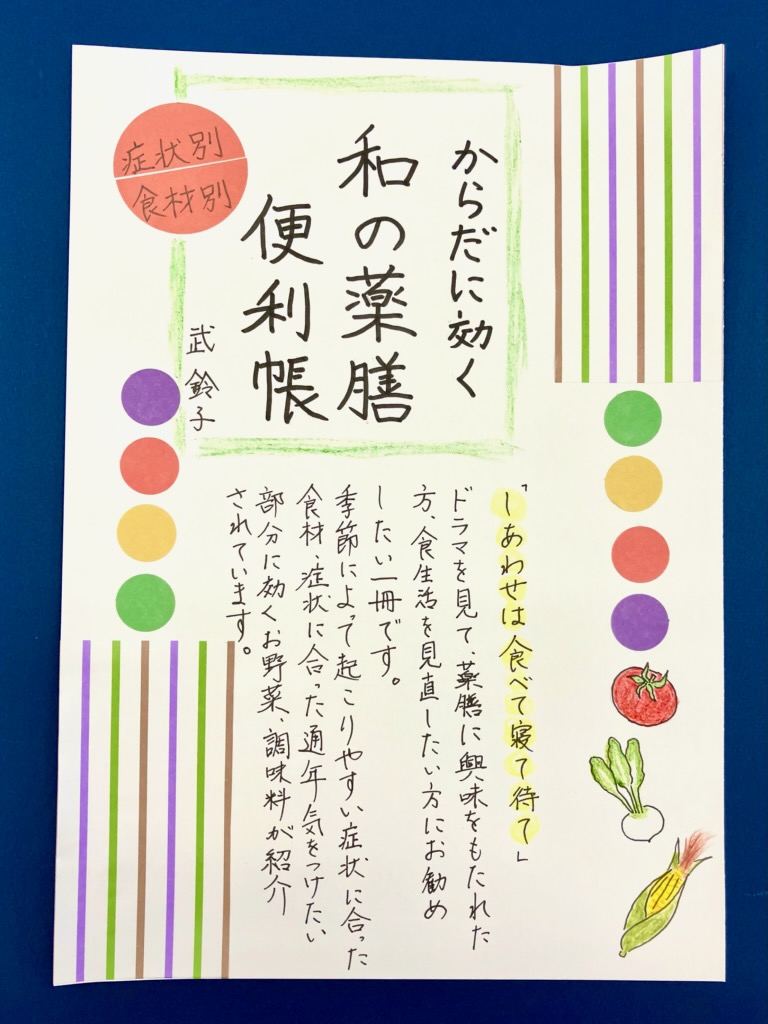 症状別
食材別
からだに効く
和の薬膳
便利帳
武 鈴子
「しあわせは食べて寝て待て」
ドラマを見て、薬膳に興味をもたれた
方、食生活を見直したい方にお勧め
したい一冊です。
季節によって起こりやすい症状に合った
食材、症状に合った通年気をつけたい
部分に効くお野菜、調味料が紹介
されています。